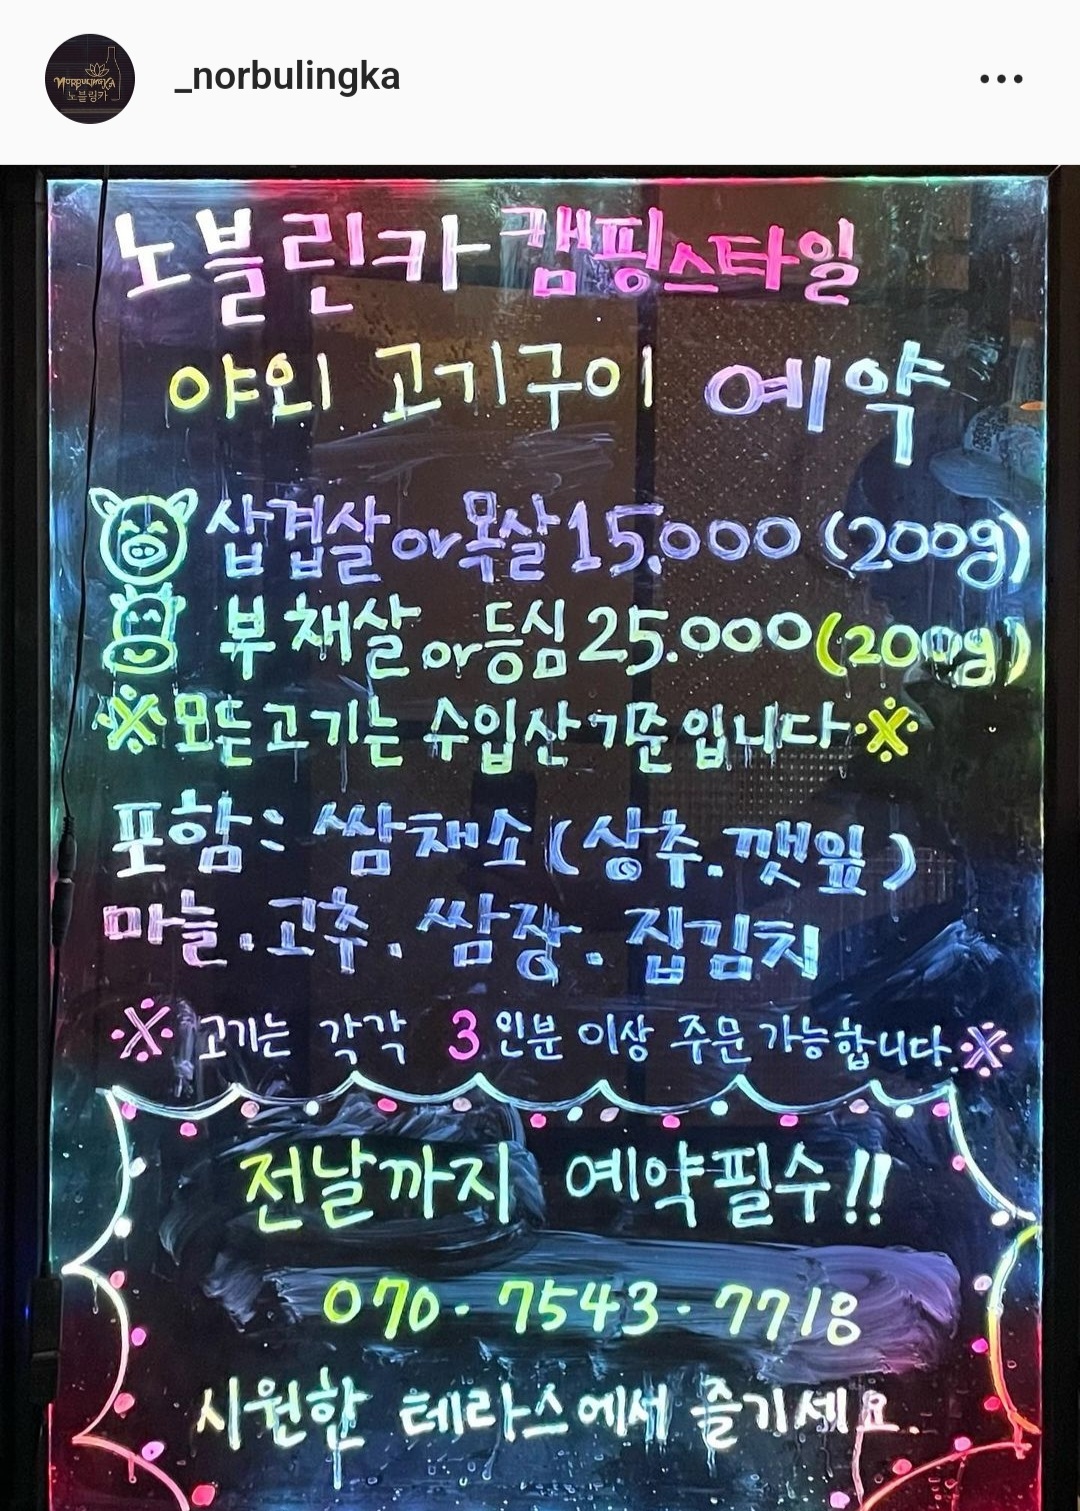 _norbulingka
NorbulingKa
노블링카
노블린카 캠핑스타일
야외 고기구이 예약
삽겹살or목살 15.000 (200g)
부채살or등심 25.000 (200g)
※모든고기는 수입산기준입니다※
포함: 쌈채소(상추.깻잎)
마늘.고추.쌈장.집김치
※ 고기는 각각 3인분 이상 주문가능합니다.※
전날까지 예약필수!!
070-7543-7718
시원한 테라스에세 즐기세요.